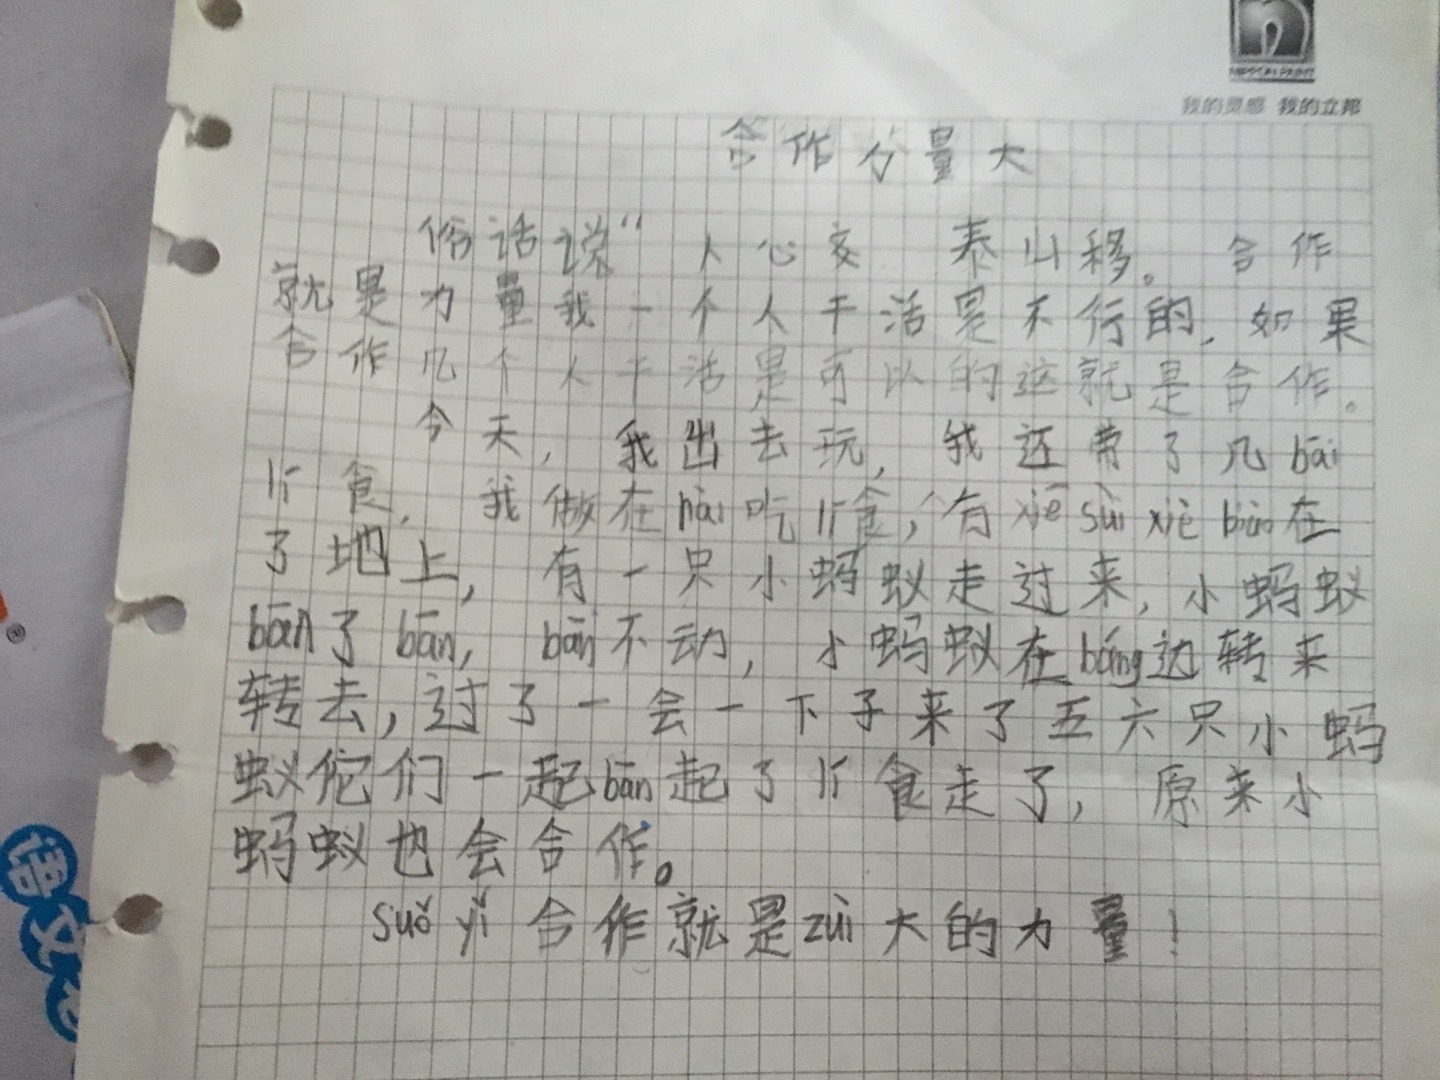 我的灵感 我的立邦
合作力量大
俗话说“人心交 泰山移。合作
就是力量我一个人干活是不行的,如果
合作几个人干活是可以的这就是合作。
今天,我出去玩,我还带了几bāi
食,我做在nài吃食,有xiē suì xiè 在
了地上,有一只小蚂蚁走过来,小蚂蚁
bān了bān,bān不动,小蚂蚁在báng边转来
转去,过了一会一下子来了五六只小蚂
蚁佗们一起bān起了食走了,原来小
蚂蚁也会合作。
suǒ yǐ 合作就是zuì大的力量!
语文